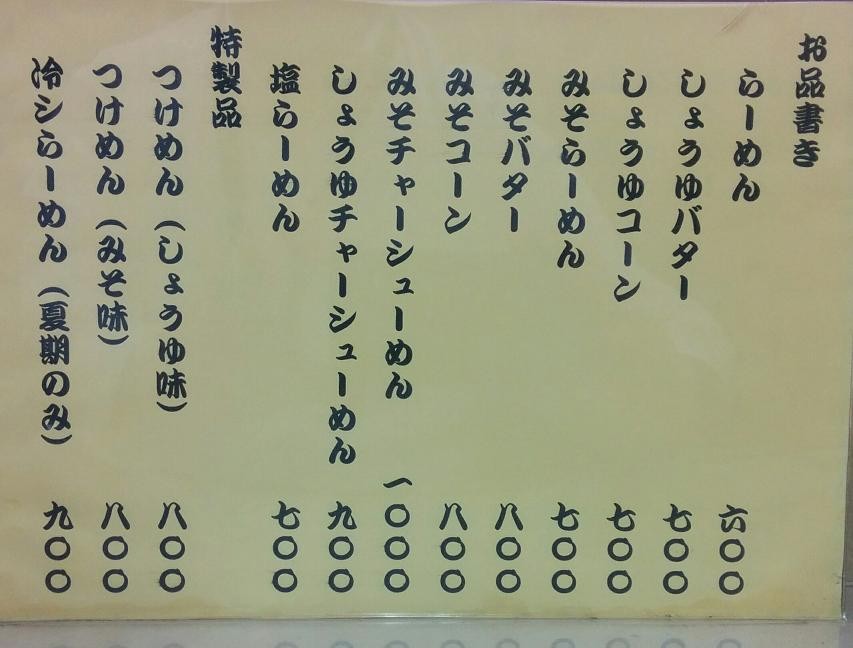 お品書き
らーめん 六〇〇
しょうゆバター 七〇〇
しょうゆコーン 七〇〇
みそらーめん 七〇〇
みそバター 八〇〇
みそコーン 八〇〇
みそチャーシューめん 一〇〇〇
しょうゆチャーシューめん 九〇〇
塩らーめん 七〇〇
特製品
つけめん(しょうゆ味) 八〇〇
つけめん(みそ味) 八〇〇
冷シらーめん(夏期のみ) 九〇〇